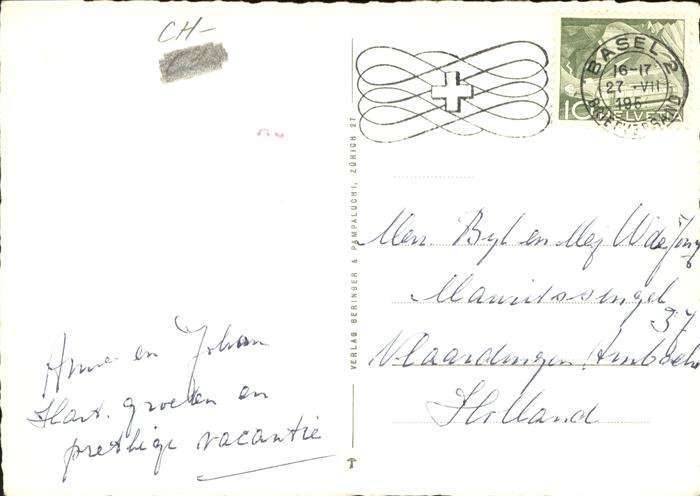 CH-
BASEL 2
16-17
27.-VII
195
BRIEFVERSAND
10 HELVETIA
VERLAG BERINGER & PAMPALUCHI, ZÜRICH 27
Anne en Johan
Hart. groeten en
prettige vacantie
Men. Byl en Mej W de Jong
Mauritssingel
37
Vlaardingen Ambacht
Holland